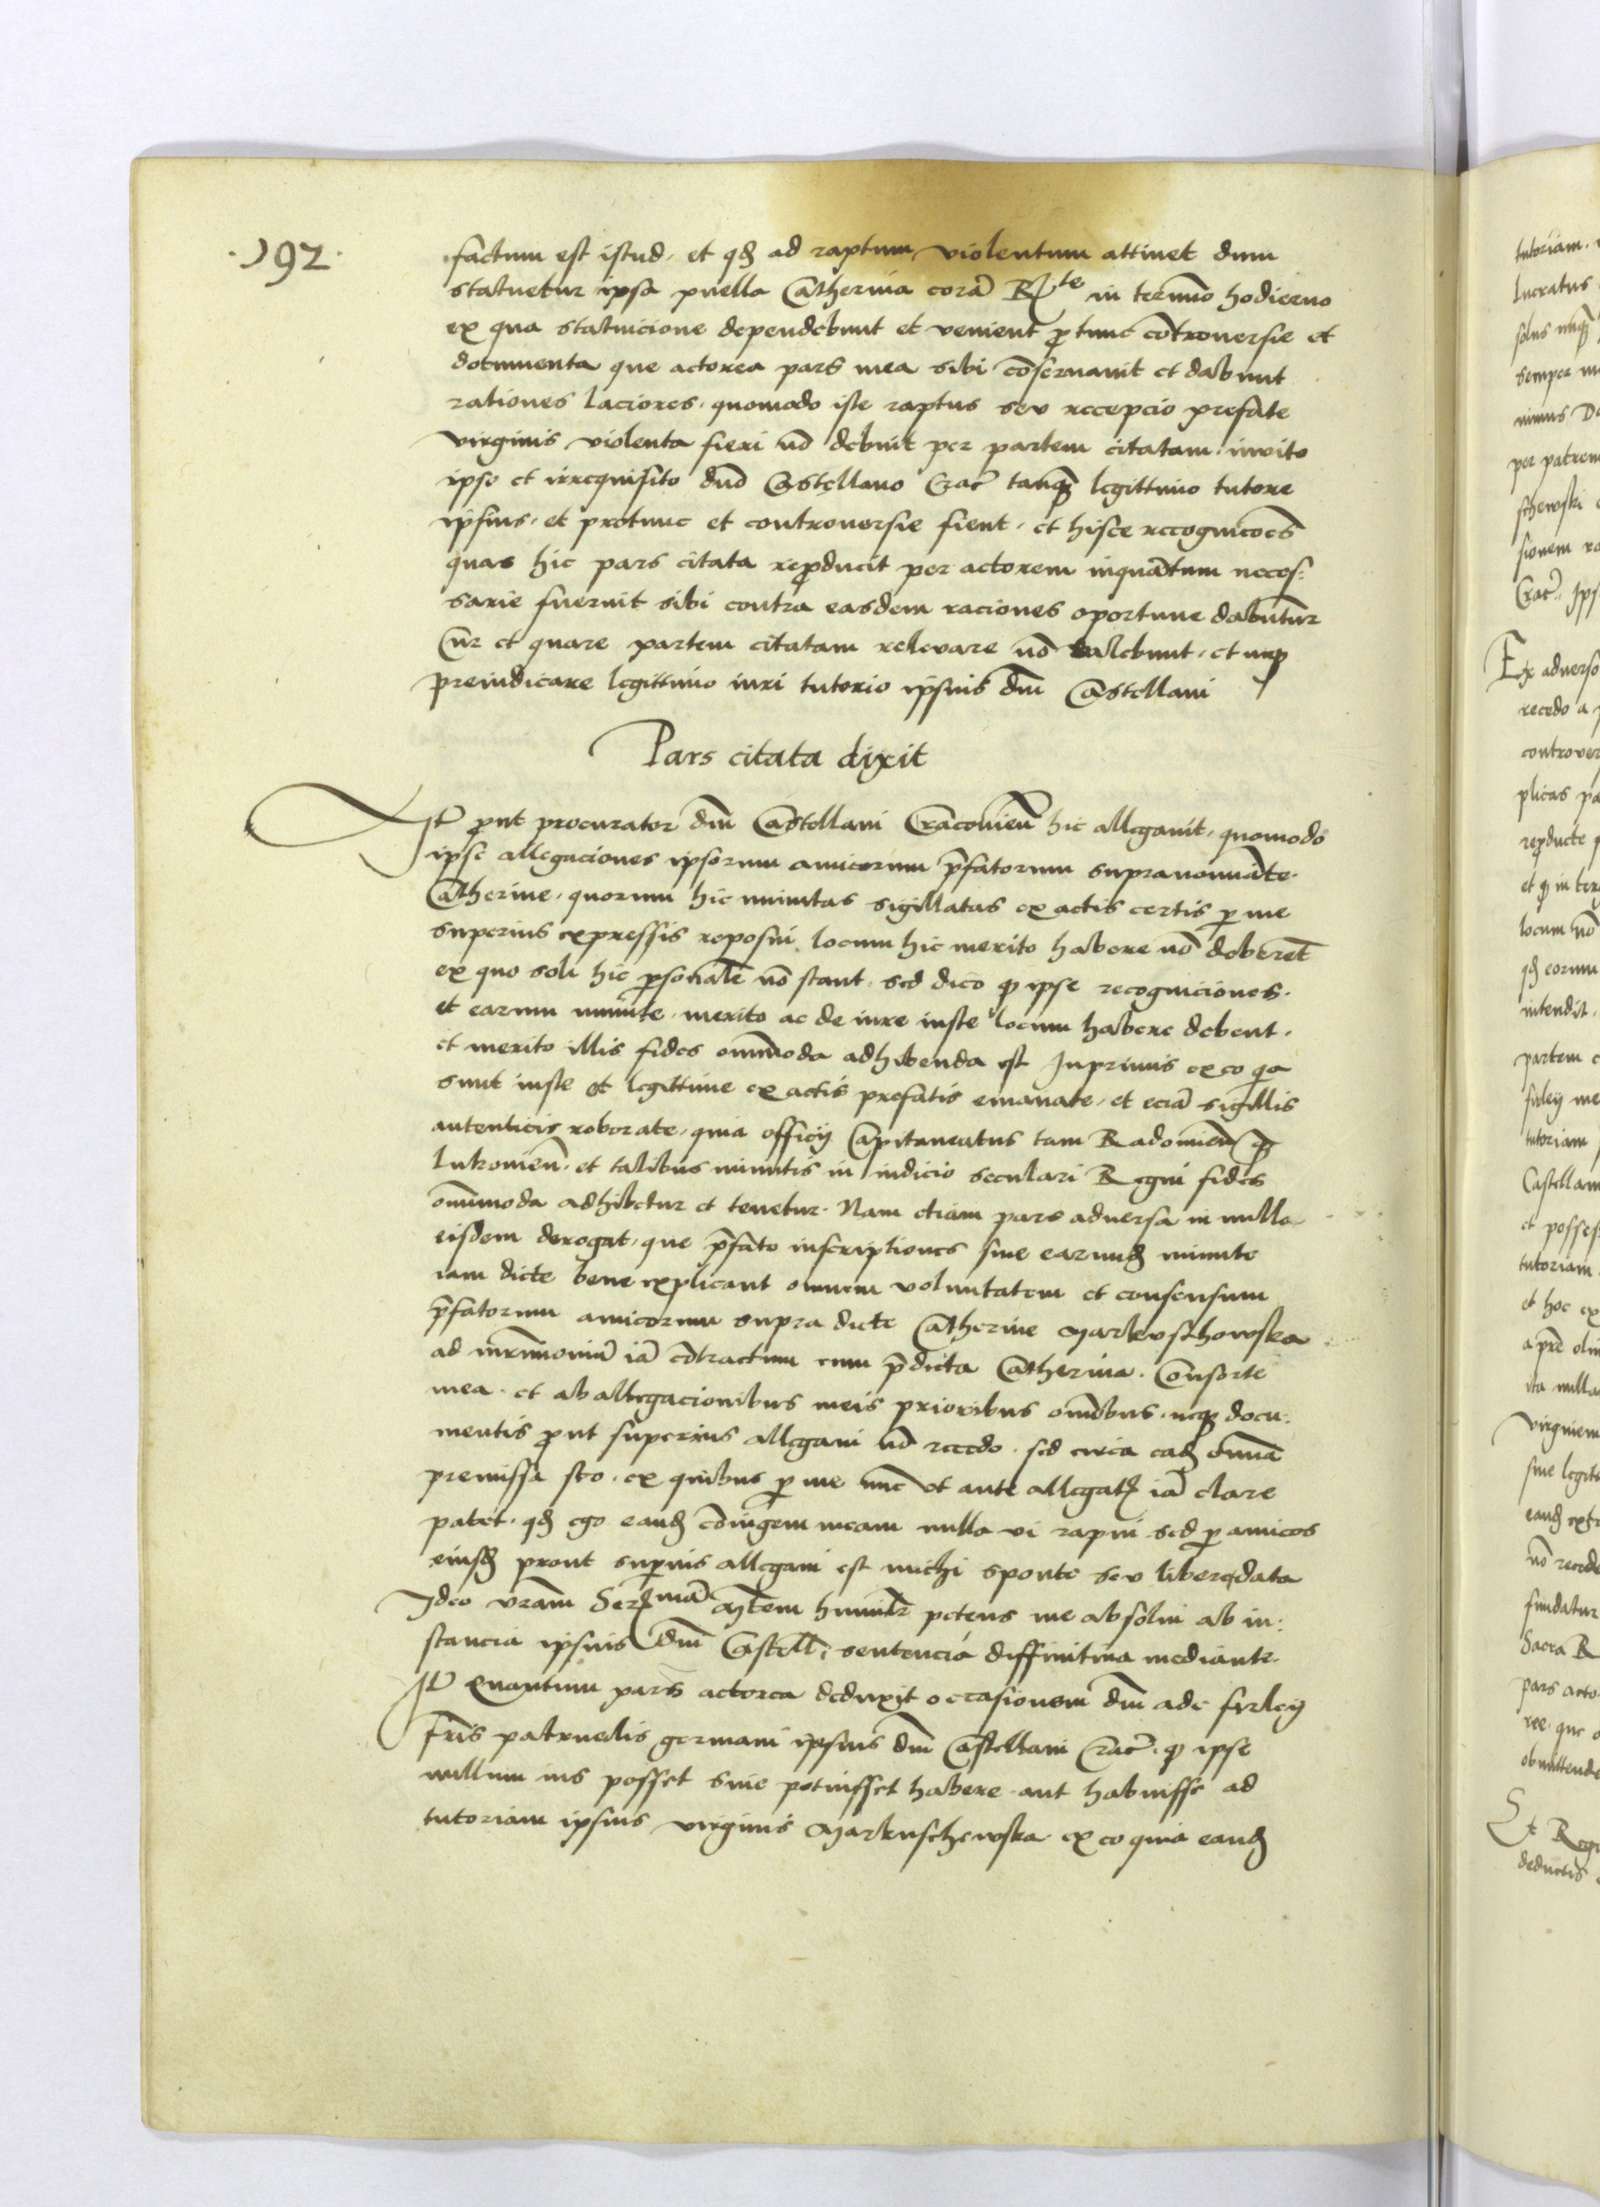 .192.
factum est istud. et qđ ad raptum violentum attinet dum
statuetur ipsa puella Catherina corā R te in termīo hodierno
ex qua statuicione dependebunt et venient ꝓtunc cōtrouersie et
documenta que actorea pars mea sibi cōseruauit et dabunt
rationes laciores. quomodo iste raptus seu recepcio prefate
virginis violenta fieri nō debuit per partem citatam. inuito
ipso et irrequisito dnō Castellano Crac̄ tanq̄ legittimo tutore
ipsius. et protunc et controuersie fient. et hisce recognicōes
quas hic pars citata reꝓducit per actorem inquātum neces:
sarie fuerint sibi contra easdem raciones oportune dabūtur
Cur et quare partem citatam releuare nō valebunt. et neqꝫ
preiudicare legittimo iuri tutorio ipsius dnī Castellani
Pars citata dixit
Itē ꝓut procurator dnī Castellani Cracouień hic allegauit. quomodo
ipse allegaciones ipsorum amicorum p̄fatorum supranomiāte
Catherine. quorum hic minutas sigillatas ex actis certis ꝑ me
superius expressis reposui. locum hic merito habere nō deberēt
ex quo soli hic ꝑsonalr̄ nō stant. sed dico ꝙ ipse recogniciones.
et earum minute. merito ac de iure iuste locum habere debent.
et merito illis fides omīmoda adhibenda est Inprimis ex eo qa
sunt iuste et legittime ex actis prefatis emanate. et eciā sigillis
autenticis roborate. quia officij Capitaneatus tam Radomień ꝙ
Lukouień. et talibus minutis in iudicio seculari Regni fides
omīmoda adhibetur et tenetur. Nam etiam pars aduersa in nullo
eisdem derogat. que p̄fate inscriptiones siue earundꝫ minute
iam dicte bene explicant omnem voluntatem et consensum
p̄fatorum amicorum supra dicte Catherine Markuschowska
ad mr̄imoniū iā cōtractum cum p̄dicta Catherina. Consorte
mea. et ab allegacionibus meis prioribus omībus. neqꝫ docu:
mentis ꝓut superius allegaui nō recedo. sed circa eadꝫ omīa
premissa sto. ex quibus ꝑ me nūc vt ante allegatꝫ iā clare
patet. qđ ego eandꝫ cōiugem meam nulla vi rapui sed ꝑ amicos
eiusdꝫ prout suꝑius allegaui est michi sponte seu libere data
Ideo vram̄ Serꝫmā Mtem humilr̄ petens me absolui ab in:
stancia ipsius dnī Castellī. sentencia diffinitiua mediante.
Itē Quantum pars actorea deduxit occasionem dnī ade firley
fr̄is patruelis germani ipsius dnī Castellani Crac̄. ꝙ ipse
nullum ius posset siue potuisset habere. aut habuisse ad
tutoriam ipsius virginis Markuschewska. ex eo quia eandꝫ